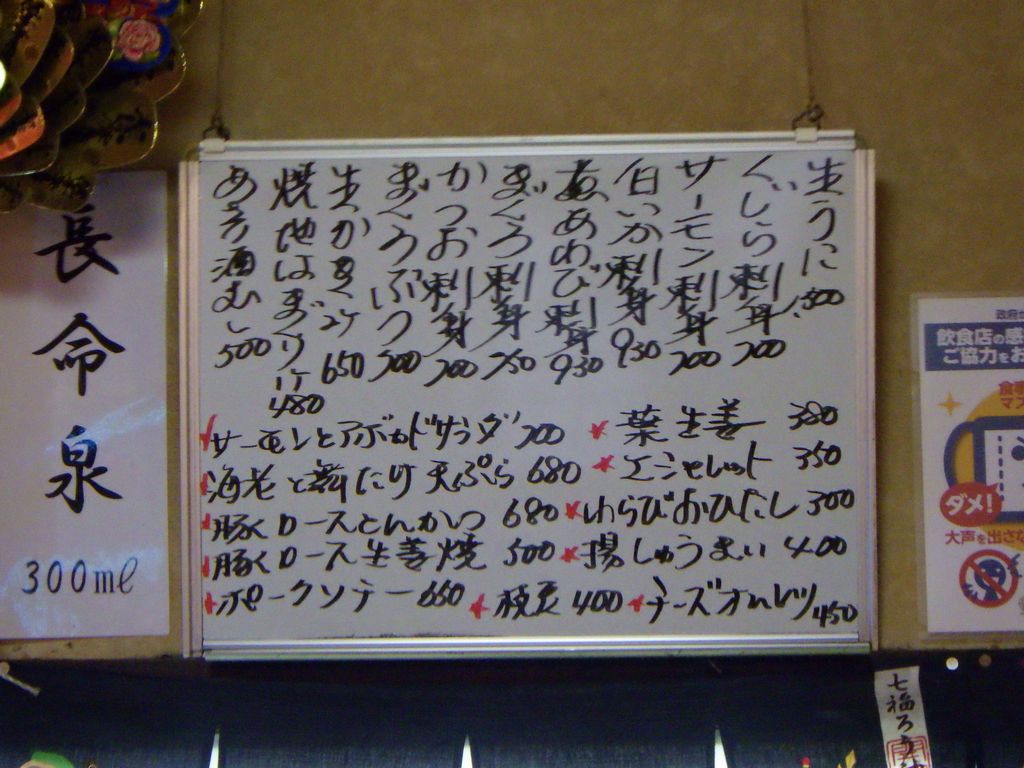 生うに
くじら刺身 700
サーモン刺身 700
白いか刺身 930
あわび刺身 930
まぐろ刺身 750
かつお刺身 700
まぐろぶつ 500
生かき2ケ 650
焼地はまぐり1ケ 480
あさり酒むし 500
サーモンとアボカドサラダ 700
葉生姜 380
海老と舞たけ天ぷら 680
エシャレット 350
豚ロースとんかつ 680
わらびおひたし 300
豚ロース生姜焼 500
揚しゅうまい 400
ポークソテー 650
枝豆 400
チーズオムレツ 450
長命泉
300ml
政府
飲食店の感
ご協力をお
食事
マス
ダメ!
大声を出さな
七福